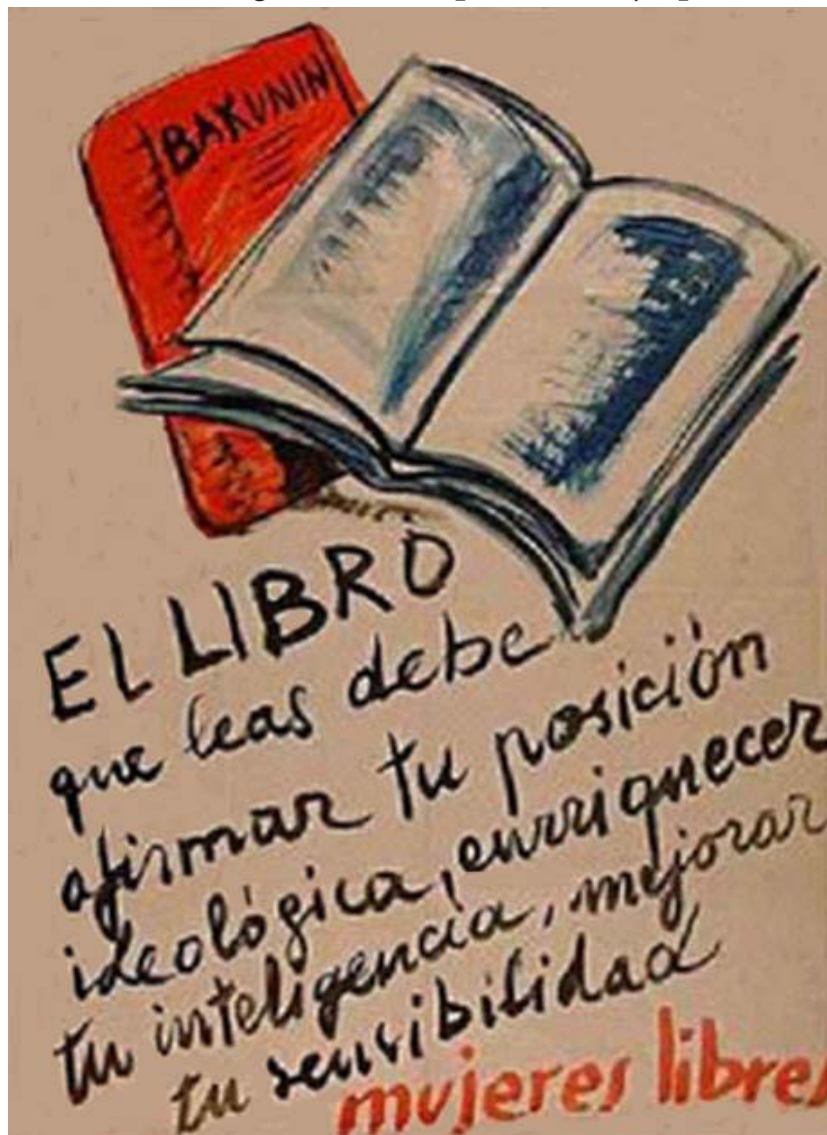 BAKUNIN
EL LIBRO
que leas debe
afirmar tu posición
ideológica, enriquecer
tu inteligencia, mejorar
tu sensibilidad
mujeres libres